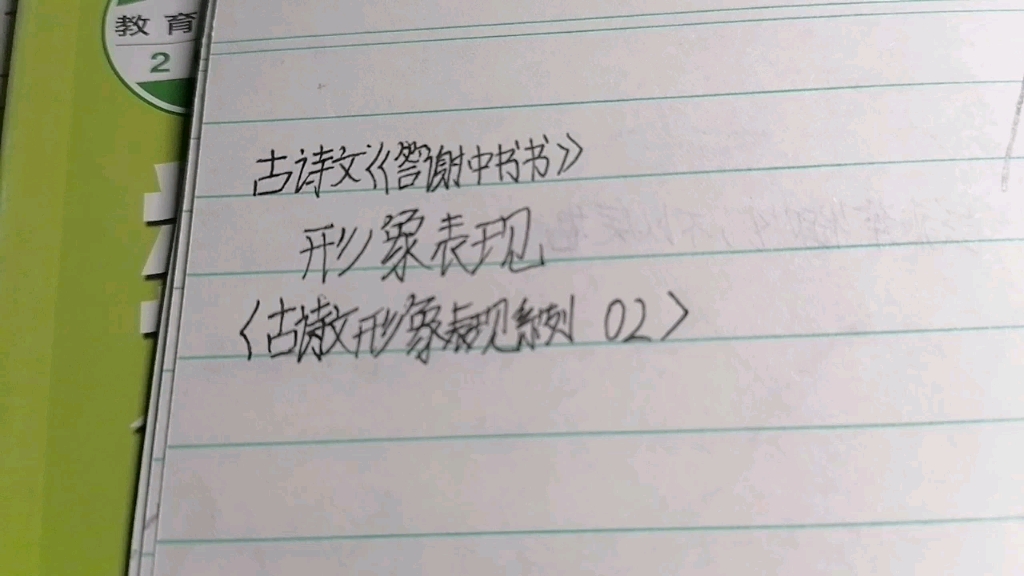 教育
2
古诗文《答谢中书书》
形象表现
〈古诗文形象表现系列 02〉